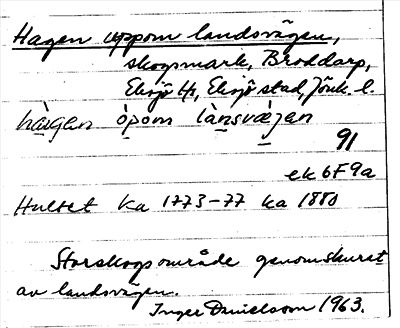 Hagen uppom landsvägen,
skogsmark, Broddarp,
Eksjö lfs, Eksjö stad, Jönk. l.
hàɩgən òpom lànsvæ̀jən
91
ek 6F9a
Hultet ka 1773-77 ka 1880
Storskogsområde genomskurat
av landsvägen.
Inger Danielsson 1963.